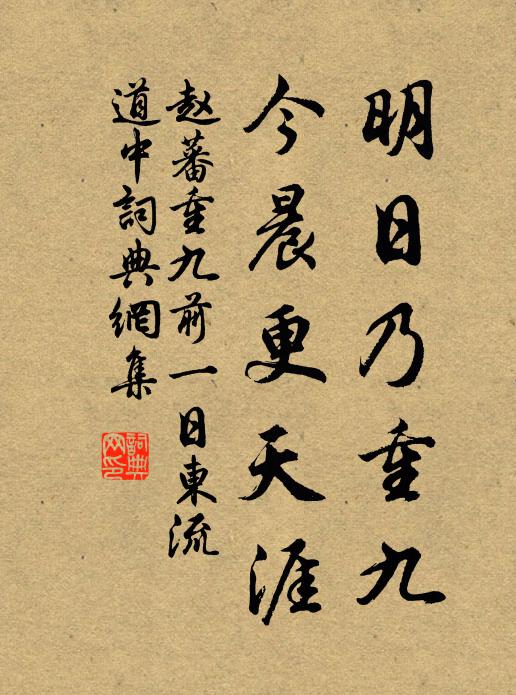 明日乃重九
今晨更天涯
赵蕃重九前一日東流
道中詞典網集
詞典
网印